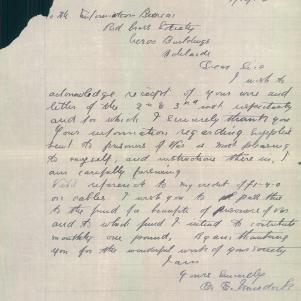 To The Information Bureau
Red Cross Society
Verco Buildings
Adelaide
Dear Sir
I wish to
acknowledge receipt of your wire and
letter of the 2nd & 3rd inst respectively
and for which I sincerely thank you
Your information regarding supplies
sent to prisoners of War is most pleasing
to myself, and instructions there in, I
am carefully following
With reference to my credit of
on cables I wish you to pass this
to the fund for benefit of prisoners of War
and to which fund I intend to contribute
monthly one pound, Again thanking
you for the wonderful work of your society
I am
Yours Sincerely